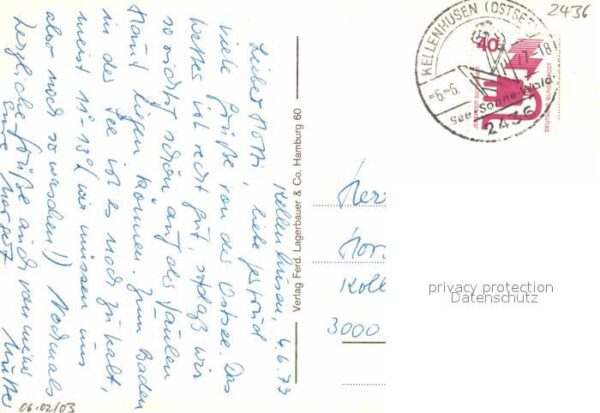 Kellenhusen, 4.6.73
Lieber Motti, liebe Gertrud
viele Grüße von der Ostsee. Das
Wetter ist recht gut, sodaß wir
so richtig schön auf der faulen
Haut liegen können. Zum Baden
in der See ist es noch zu kalt,
meist 12-13° (wir müssen uns
aber noch so waschen!) Nochmals
herzliche Grüße auch von meiner Mutter
Eure Margret
Verlag Ferd. Lagerbauer & Co. Hamburg 60
KELLENHUSEN (OSTSEE)
-6.-6.
11
See-Sonne-Wald
2436
40
DEUTSCHE BUNDESPOST
2436
Herr
Kolle
3000
privacy protection
Datenschutz
06.02/03